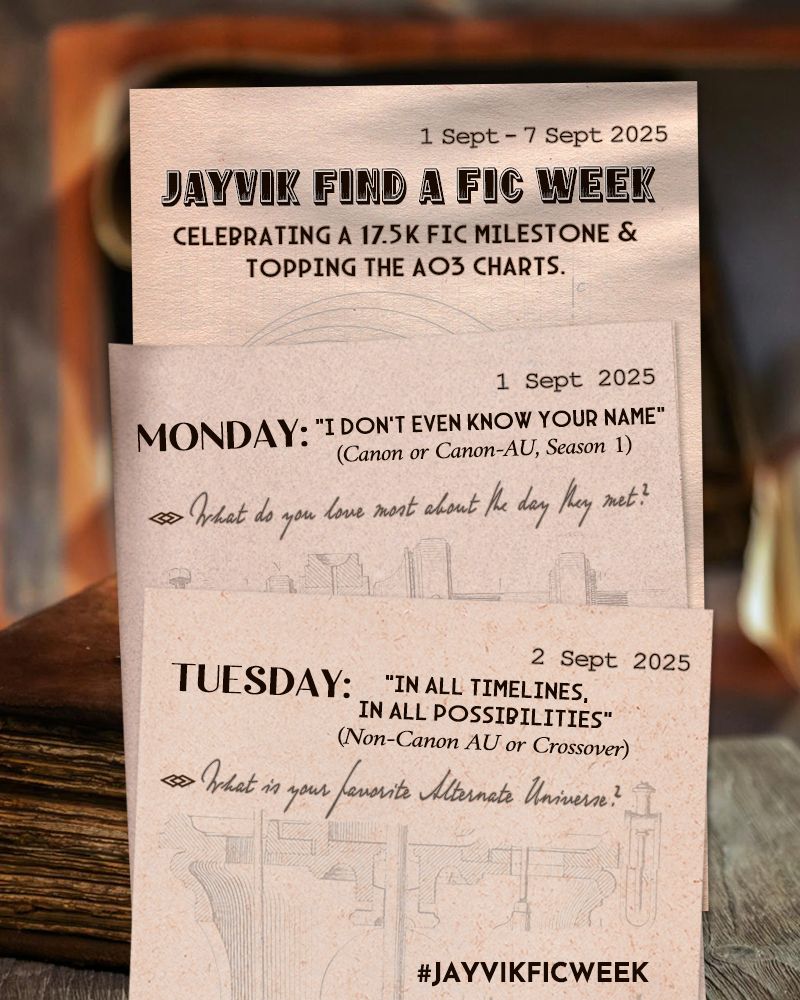 1 Sept - 7 Sept 2025
JAYVIK FIND A FIC WEEK
CELEBRATING A 17.5K FIC MILESTONE &
TOPPING THE AO3 CHARTS.
c
1 Sept 2025
MONDAY: "I DON'T EVEN KNOW YOUR NAME"
(Canon or Canon-AU, Season 1)
What do you love most about the day they met?
2 Sept 2025
TUESDAY: "IN ALL TIMELINES,
IN ALL POSSIBILITIES"
(Non-Canon AU or Crossover)
What is your favorite Alternate Universe?
#JAYVIKFICWEEK